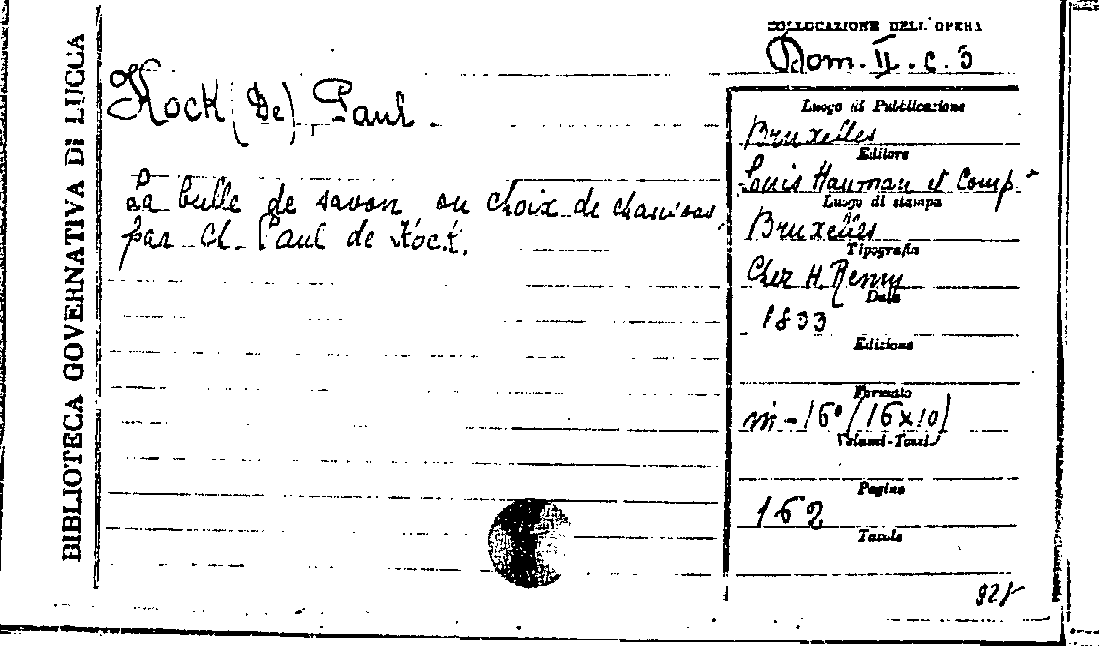 BIBLIOTECA GOVERNATIVA DI LUCCA
COLLOCAZIONE DELL'OPERA
Dom. II. c. 3
Kock (De), Paul
La bulle de savon ou choix de chansons
par Ch. Paul de Kock.
Luogo di Pubblicazione
Bruxelles
Editore
Louis Hauman et Comp.
Luogo di stampa
Bruxelles
Tipografia
Chez H. Remy
Data
1833
Edizione
Formato
in-16° (16x10)
Volumi-Tomi
Pagine
162
Tavole